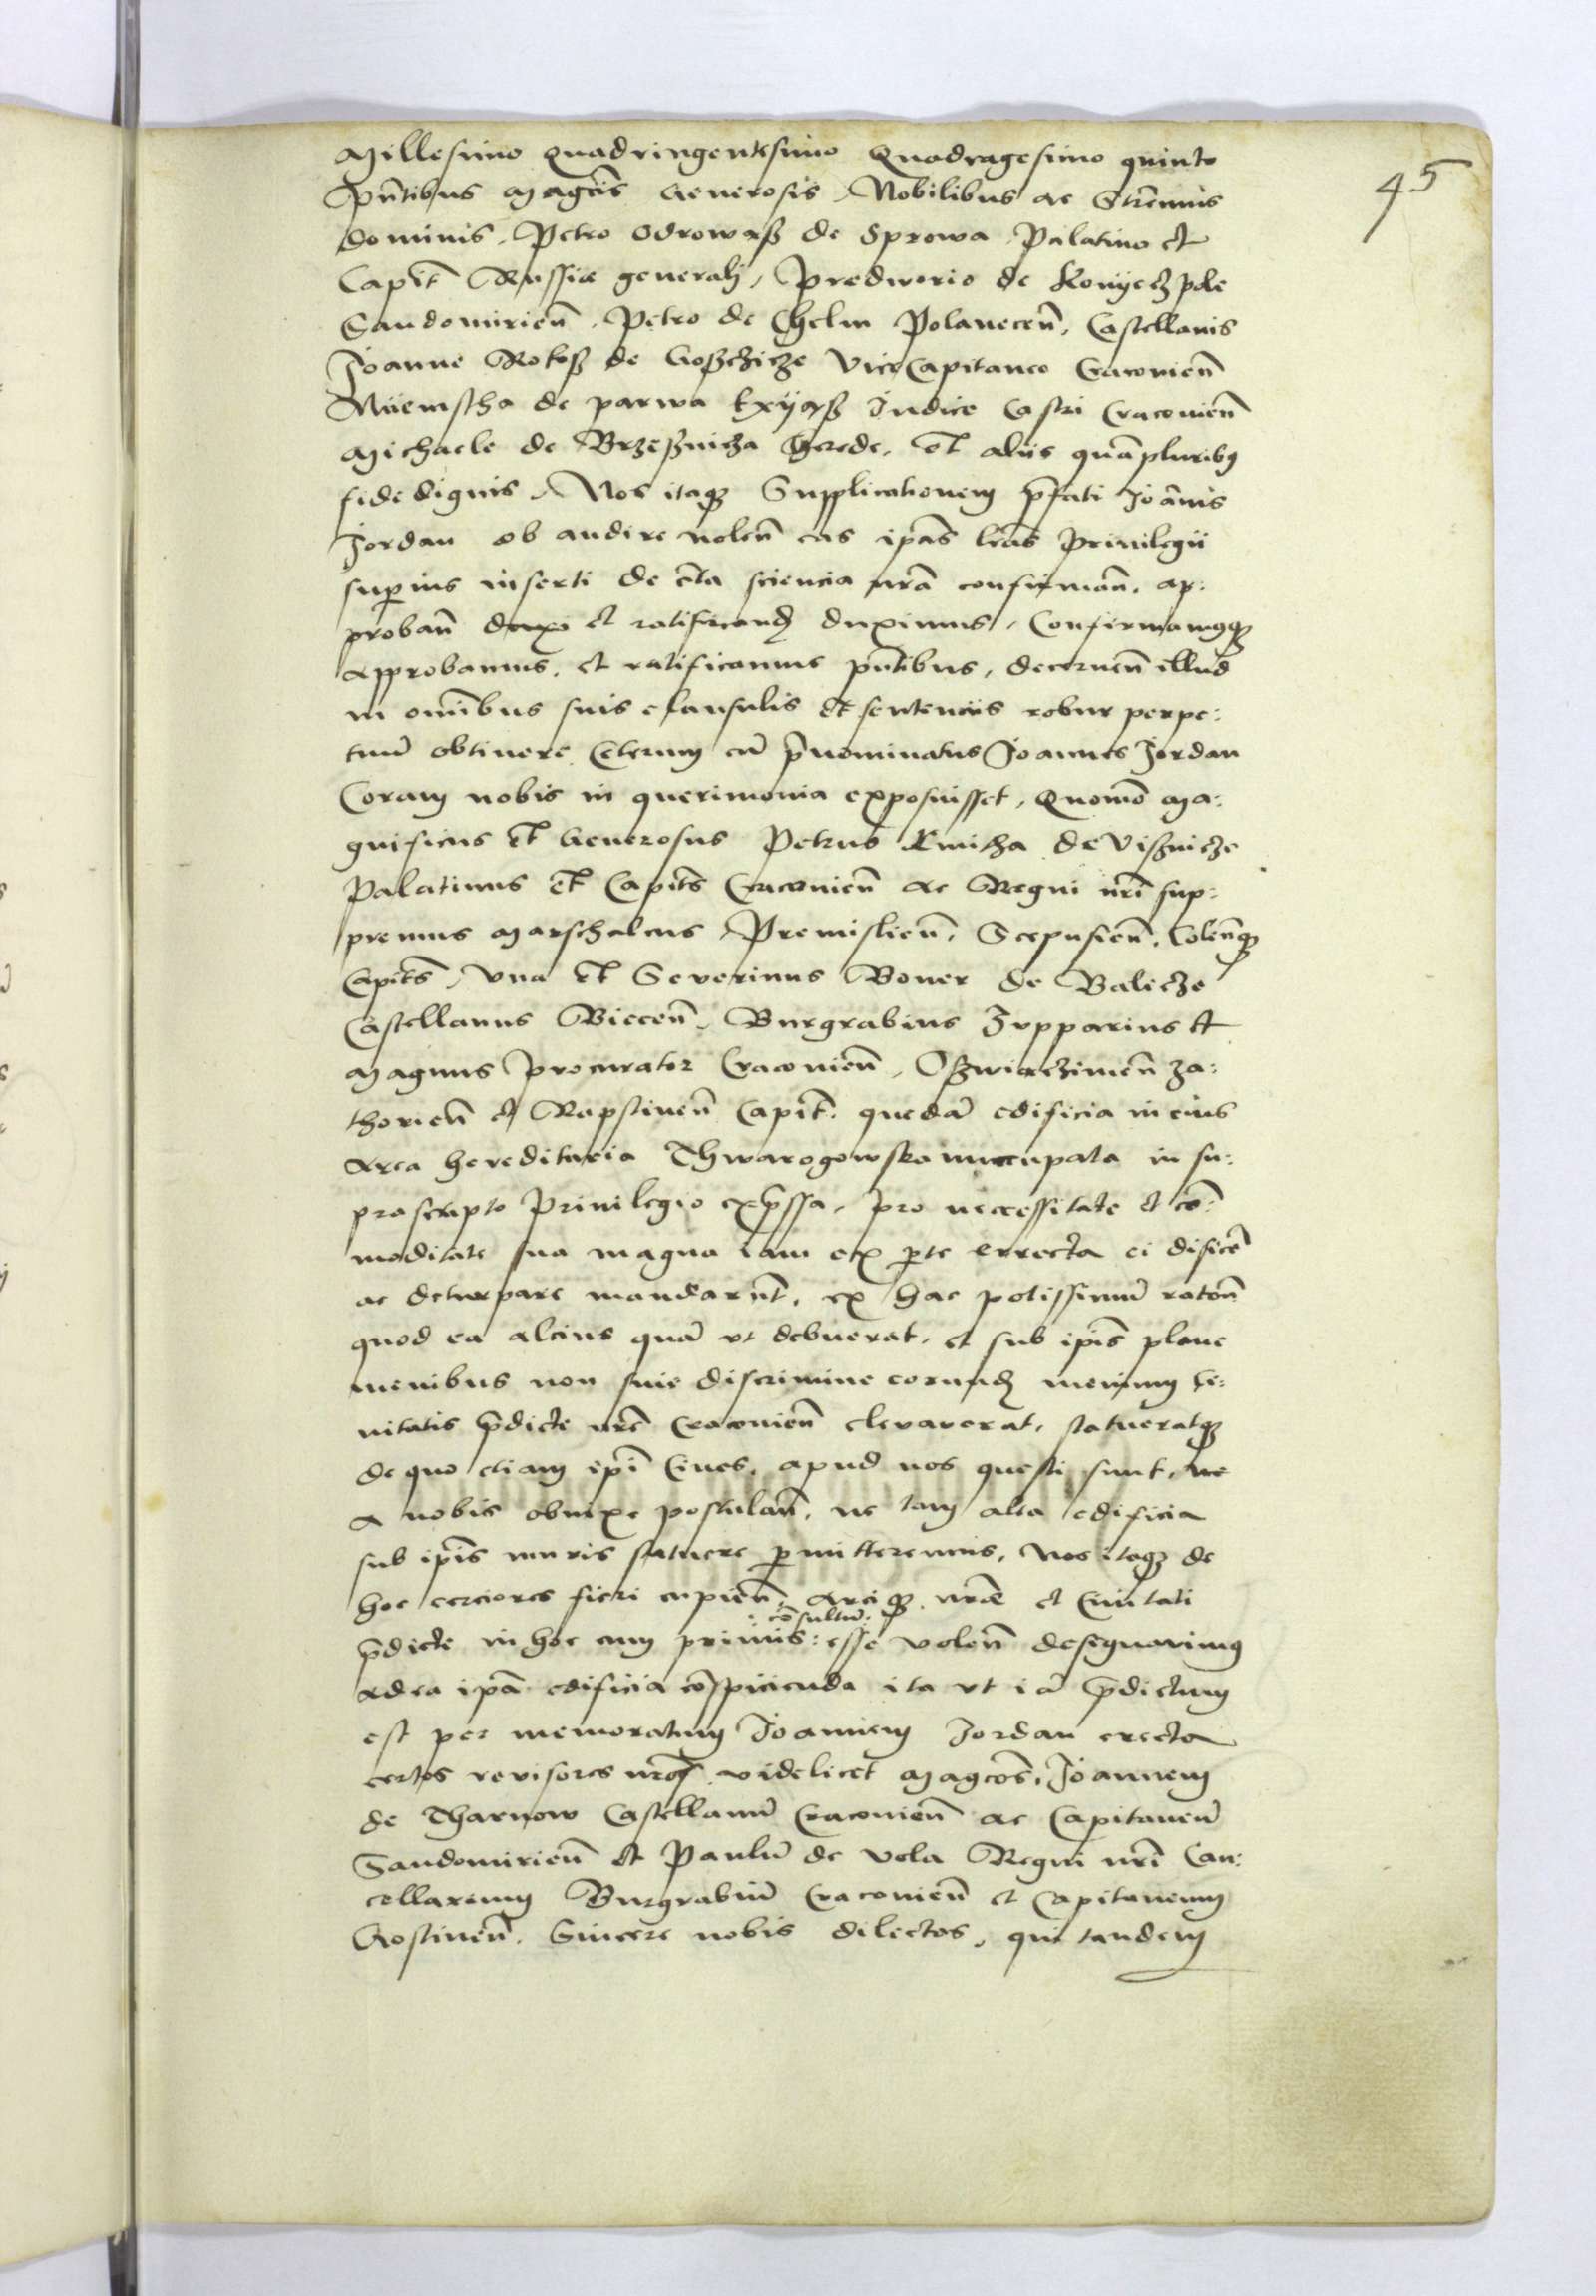 45
Millesimo Quadringentesimo Quadragesimo quinto
Pñtibus Magcis Generosis, Nobilibus ac Strenuis
dominis, Petro Odrowąß de Sprowa Palatino et
Capit Russiæ generalj, Predworio de Konyeczpole
Sandomirieñ, Petro de Chelm Polaneceñ, Castellanis
Joanne Rokoß de Koßchicze ViceCapitaneo Cracovieñ
Niiemstha de parwa Exyąß Judice Castri Cracovieñ
Michaele de Brzeßnicza herede, et aliis quãpluribus
fide dignis, Nos itaq3 Supplicationem p̃fati Joãnis
Jordan ob audire noleñ eas ip̃as lr̃as Privilegii
superius inserti de c̃ta sciencia nr̃a confirmañ, ap:
probañ et ratificand duximus, Confirmamusq3
approbamus, et ratificamus pñtibus, decerneñ illud
in omnibus suis clausulis et sentenciis robur perpe:
tuũ obtinere, Ceterum cũ p̃nominatus Joannes Jordan
Coram nobis in querimonia exposuisset, Quomõ Ma:
gnificus et Generosus Petrus Kmitha de Vißnicze
Palatinus et Capit̃s Cracovieñ ac Regni nr̃i sup:
premus Marschalcus, Premislieñ, Scepusieñ, Coleñq3
Capit̃s, Una et Severinus Boner de Balicze
Castellanus Bieceñ, Burgrabius Zupparius et
Magnus Procurator Cracovieñ, Oßwiączimeñ Za:
thorieñ et Rapstineñ Capit̃, quedã edificia in eius
Area hereditaria Thwarogowska nuncupata in su:
prascripto Privilegio exp̃ssa, pro necessitate et cõ:
moditate sua magna iam ex p̃te errecta ei disicẽ
ac deturpare mandarũt, ex hac potissimũ ratoñ
quod ea alcius quã ut debuerat, et sub ip̃is plane
menibus non sine discrimine eorund menium Ci:
vitatis p̃dicte nr̃e Cracovieñ elevaverat, statueratq3
de quo etiam ip̃i Cives, apud nos questi sunt, ne
a nobis obnixe postulañ, ne tam alta edificia
sub ip̃is muris statuere p̃mitteremus, Nos itaq3 de
hoc cerciores fieri cupieñ, Arciq3 nr̃æ et Civitati
p̃dicte in hoc cum primis :cõsultũ: esse voleñ designavimus
ad ea ip̃a edificia cõspicienda ita ut iã p̃dictum
est per memoratum Joannem Jordan erecta
certos revisores nr̃os videlicet Magcos, Joannem
de Tharnow Castellanũ Cracovieñ ac Capitaneũ
Sandomirieñ et Paulũ de Vola Regni nr̃i Can:
cellarium Burgrabiũ Cracovieñ et Capitaneum
Gostineñ, Sincere nobis dilectos, qui tandem